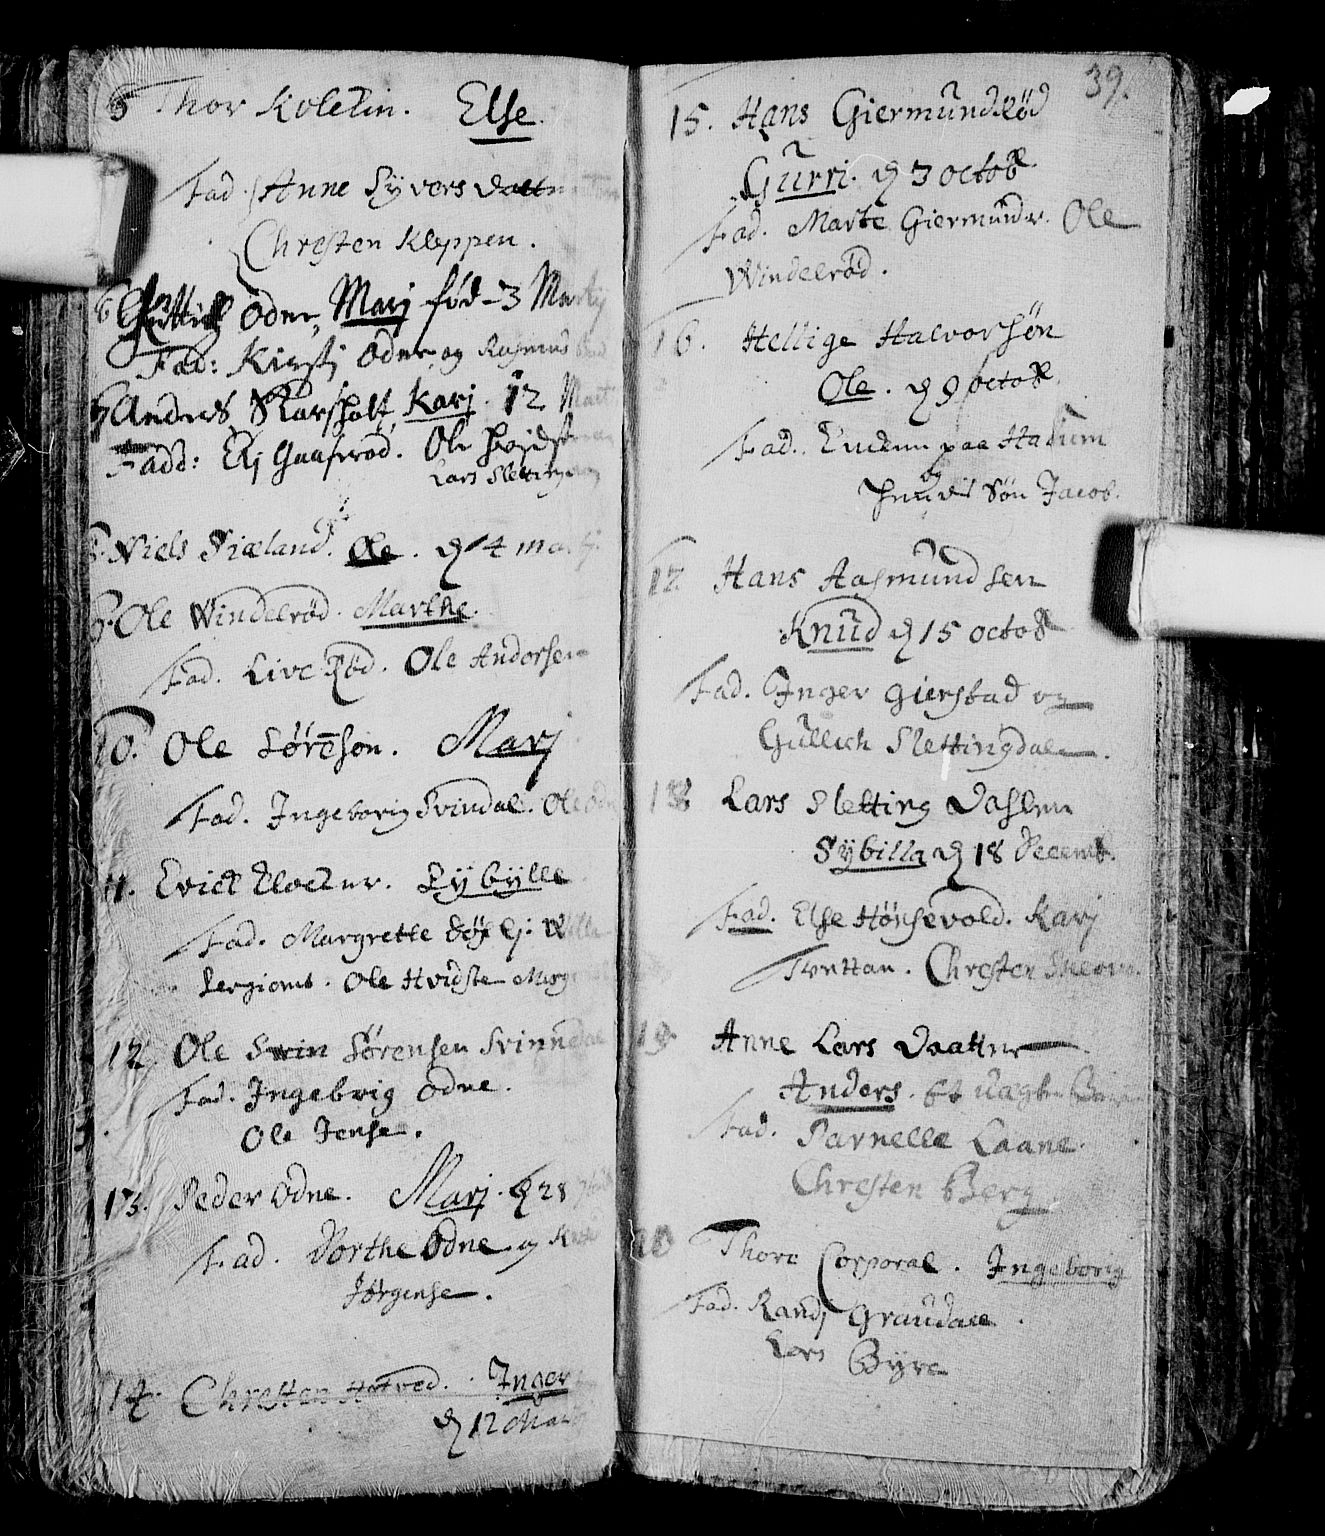 5 Thor Koletin. Else.
Fad. Anne Syvers datt
Chresten Kleppen.
6 Odne, Marj fød 3 Martij
Fad: Kirstj Odne og Rasmus
7 Andres Skarsholt Karj. 12 Mart
Fadd: Elj Gaaserød. Ole
Lars Sletting
8. Niels Siæland. Ole. d 4 martj.
9. Ole Windelrød. Marthe.
Fad. Live Rød. Ole Andorsen
10. Ole Sørenson. Marj
Fad. Ingeborig Svindal. Ole Odne
11. Erick Klocker. Sybylle
Fad. Margrette
Sergiomt. Ole Hvidste
12. Ole Sørensen Svinnedal
Fad. Ingebrig Odne.
Ole Jense.
13. Peder Odne. Marj. d 28
Fad. Dorthe Odne og
Jørgense.
14. Chresten Hotved. Inger
d 12
39.
15. Hans Giermundrød
Gurri. d 3 octob
Fad. Marte Giermundr. Ole
Windelrød.
16. Hellige Halvorsøn
Ole. d 9 octob
Fad. paa Hasum
og
Knuds Søn Jacob.
17 Hans Aasmundsen
Knud d 15 octob
Fad. Inger gierstad og
Gullich Slettingdalen.
18 Lars Sletting Dahlen
Sybilla d 18 Decemb.
Fad. Else Hønsevold. Karj
Tvettan. Chresten
19 Anne Lars Daatter
Anders. Et uægte
Fad. Parnelle Laane.
Chresten Berg.
20 Thore Corporal. Ingeborig
Fad. Randj Graudale.
Lars Byre